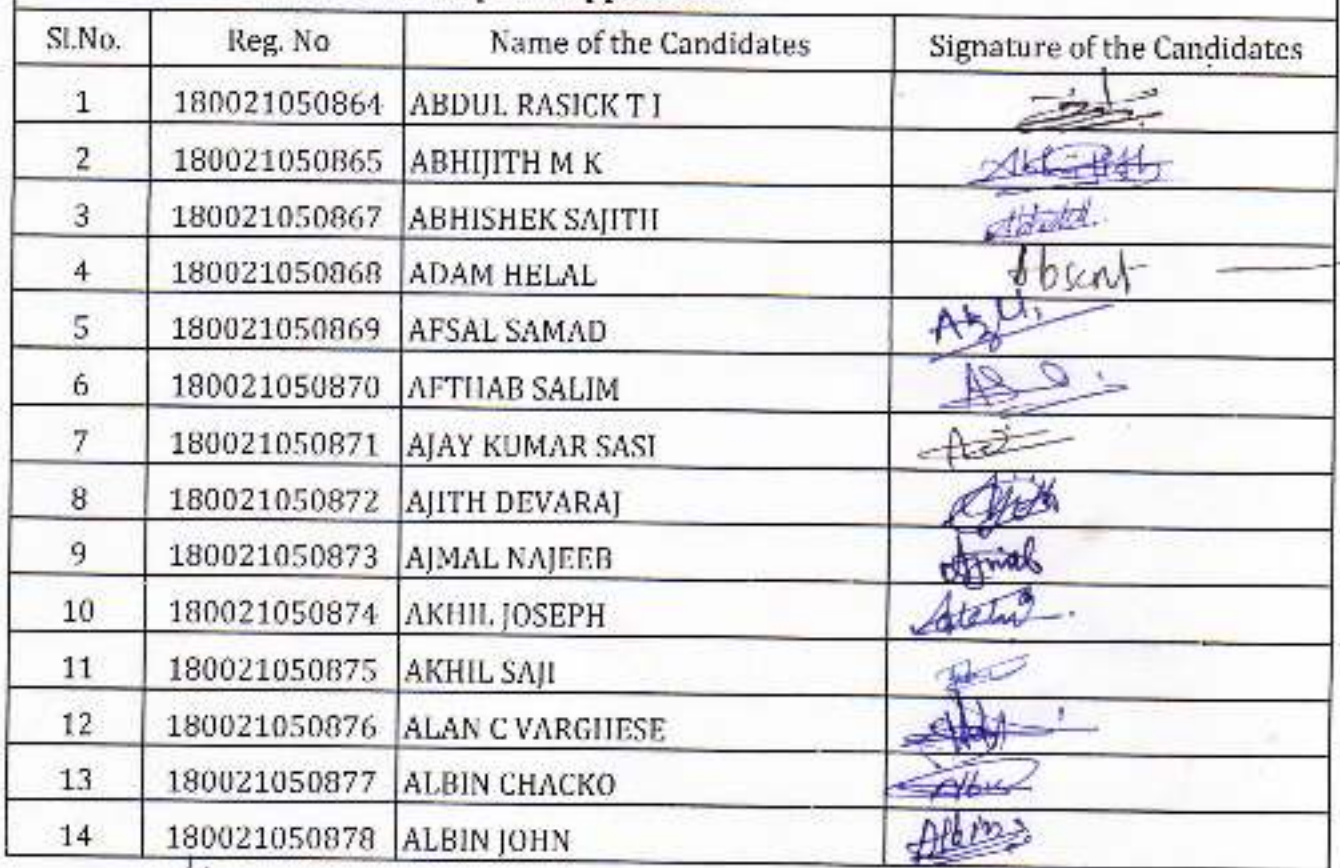 Sl.No. Reg. No Name of the Candidates Signature of the Candidates
1 180021050864 ABDUL RASICK T I
2 180021050865 ABHIJITH M K Abhijith
3 180021050867 ABHISHEK SAJITH
4 180021050868 ADAM HELAL Absent
5 180021050869 AFSAL SAMAD
6 180021050870 AFTHAB SALIM
7 180021050871 AJAY KUMAR SASI
8 180021050872 AJITH DEVARAJ Ajith
9 180021050873 AJMAL NAJEEB Ajmal
10 180021050874 AKHIL JOSEPH
11 180021050875 AKHIL SAJI
12 180021050876 ALAN C VARGHESE
13 180021050877 ALBIN CHACKO Albin
14 180021050878 ALBIN JOHN Albin